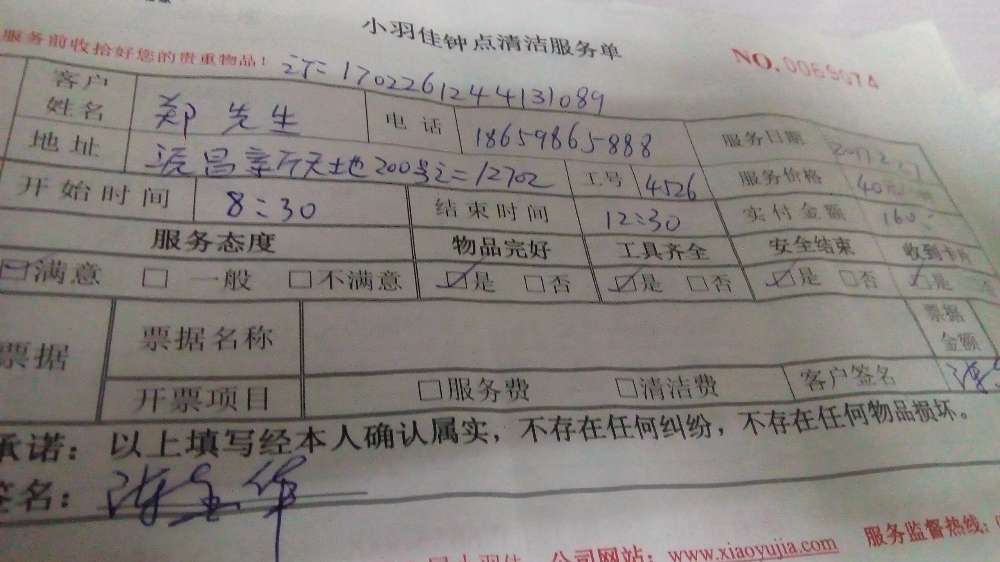 小羽佳钟点清洁服务单
服务前收拾好您的贵重物品！
NO.0069074
1702261244131089
客户姓名 郑先生 电话 18659865888 服务日期 2017.2.27
地址 天地200号之二12702 工号 4526 服务价格 40元
开始时间 8:30 结束时间 12:30 实付金额 160
服务态度 物品完好 工具齐全 安全结束 收到卡片
☑满意 □一般 □不满意 ☑是 □否 ☑是 □否 ☑是 □否 ☑是
票据 票据名称 票据金额
开票项目 □服务费 □清洁费 客户签名
承诺：以上填写经本人确认属实，不存在任何纠纷，不存在任何物品损坏。
签名：
公司网站：www.xiaoyujia.com 服务监督热线：